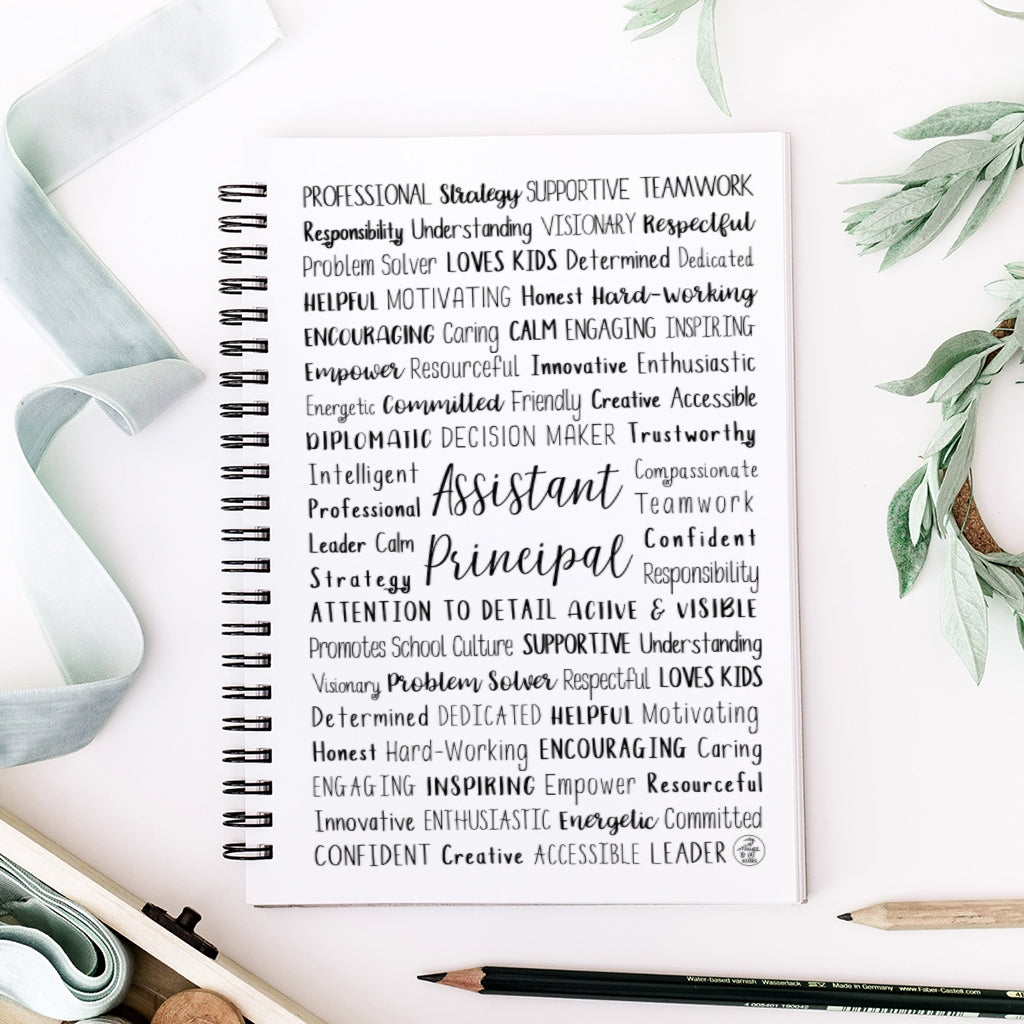 PROFESSIONAL Strategy SUPPORTIVE TEAMWORK
Responsibility Understanding VISIONARY Respectful
Problem Solver LOVES KIDS Determined Dedicated
HELPFUL MOTIVATING Honest Hard-Working
ENCOURAGING Caring CALM ENGAGING INSPIRING
Empower Resourceful Innovative Enthusiastic
Energetic Committed Friendly Creative Accessible
DIPLOMATIC DECISION MAKER Trustworthy
Intelligent
Professional
Leader Calm
Strategy
Assistant
Principal
Compassionate
Teamwork
Confident
Responsibility
ATTENTION TO DETAIL ACTIVE & VISIBLE
Promotes School Culture SUPPORTIVE Understanding
Visionary Problem Solver Respectful LOVES KIDS
Determined DEDICATED HELPFUL Motivating
Honest Hard-Working ENCOURAGING Caring
ENGAGING INSPIRING Empower Resourceful
Innovative ENTHUSIASTIC Energetic Committed
CONFIDENT Creative ACCESSIBLE LEADER
Water-based varnish Wasserlack Made in Germany www.Faber-Castell.com